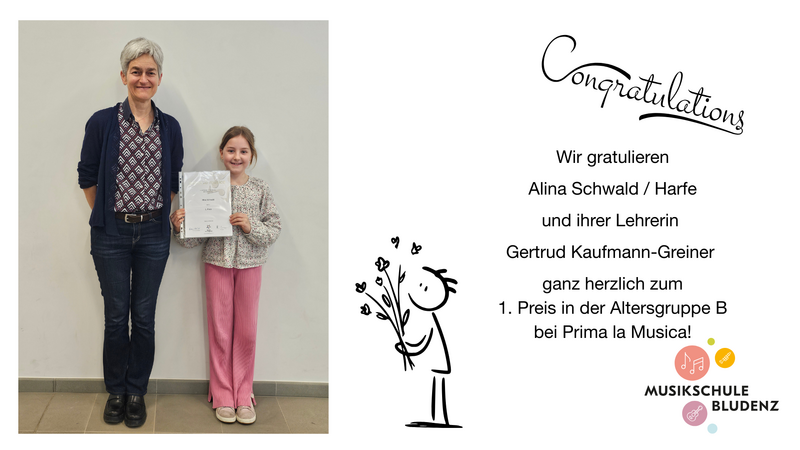 Congratulations
Wir gratulieren
Alina Schwald / Harfe
und ihrer Lehrerin
Gertrud Kaufmann-Greiner
ganz herzlich zum
1. Preis in der Altersgruppe B
bei Prima la Musica!
MUSIKSCHULE
BLUDENZ